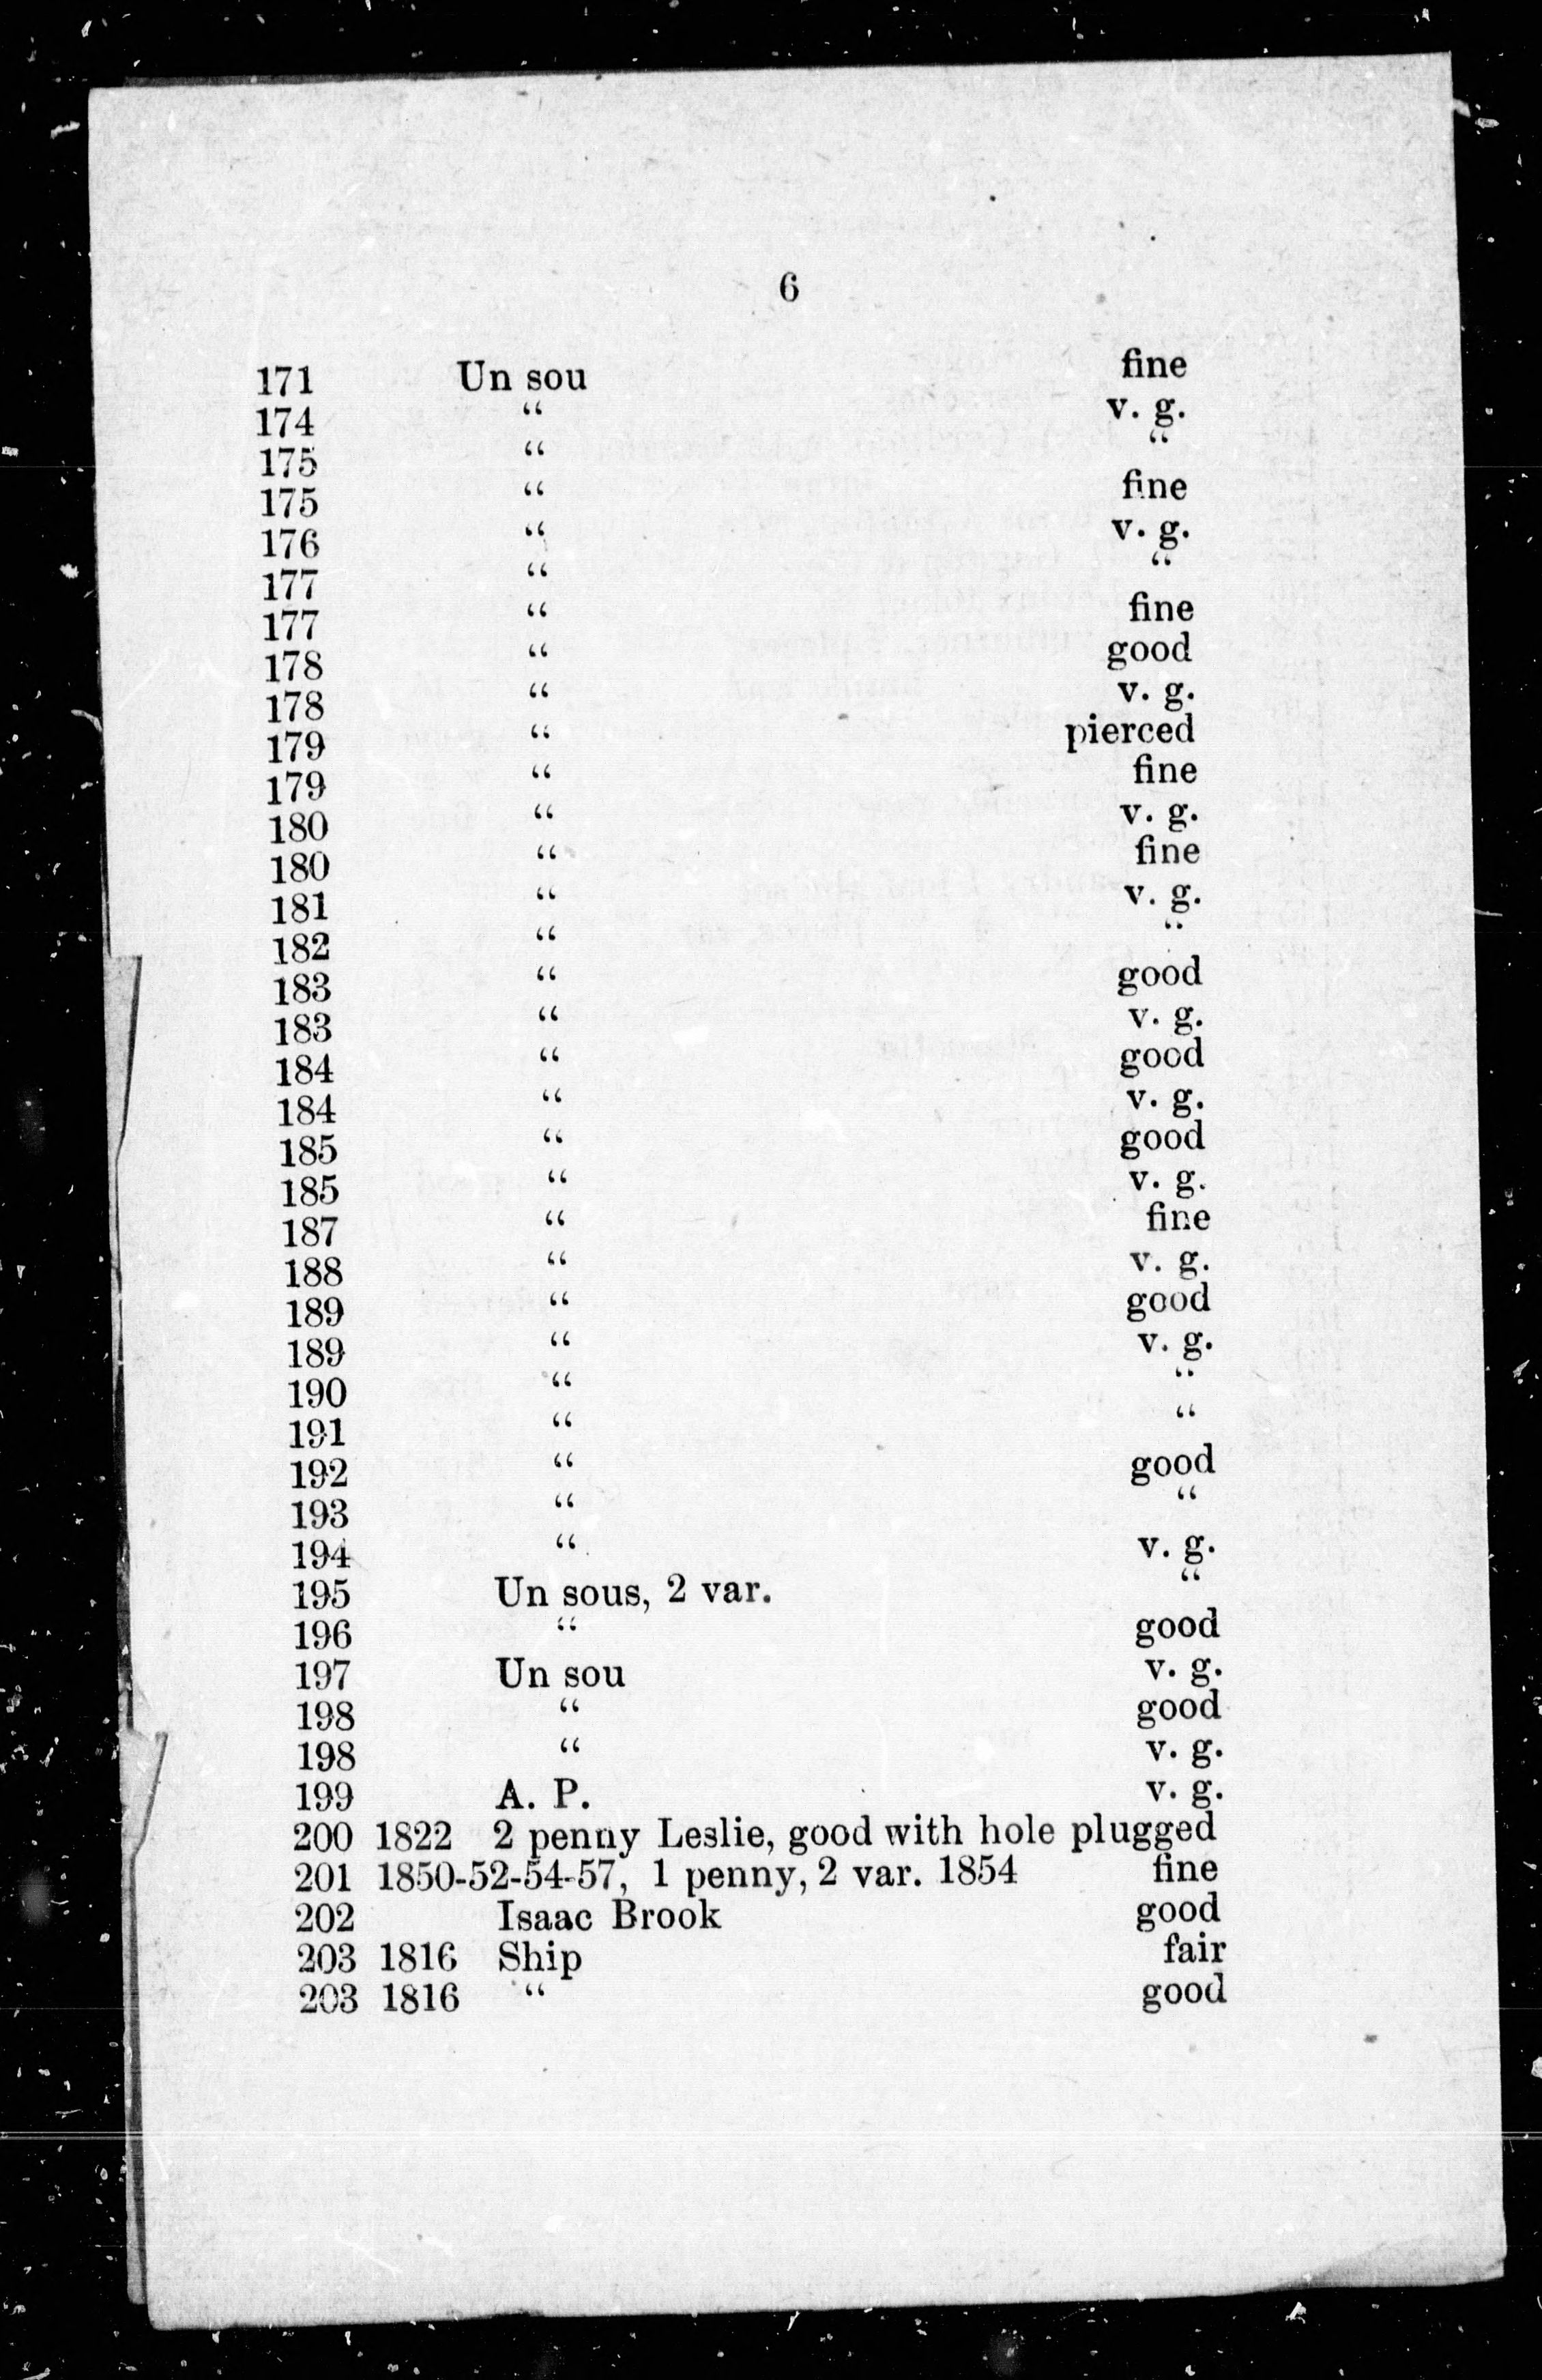 6
171 Un sou fine
174 “ v. g.
175 “ “
175 “ fine
176 “ v. g.
177 “ “
177 “ fine
178 “ good
178 “ v. g.
179 “ pierced
179 “ fine
180 “ v. g.
180 “ fine
181 “ v. g.
182 “ “
183 “ good
183 “ v. g.
184 “ good
184 “ v. g.
185 “ good
185 “ v. g.
187 “ fine
188 “ v. g.
189 “ good
189 “ v. g.
190 “ “
191 “ “
192 “ good
193 “ “
194 “ v. g.
195 Un sous, 2 var. “
196 “ good
197 Un sou v. g.
198 “ good
198 “ v. g.
199 A. P. v. g.
200 1822 2 penny Leslie, good with hole plugged
201 1850-52-54-57, 1 penny, 2 var. 1854 fine
202 Isaac Brook good
203 1816 Ship fair
203 1816 “ good